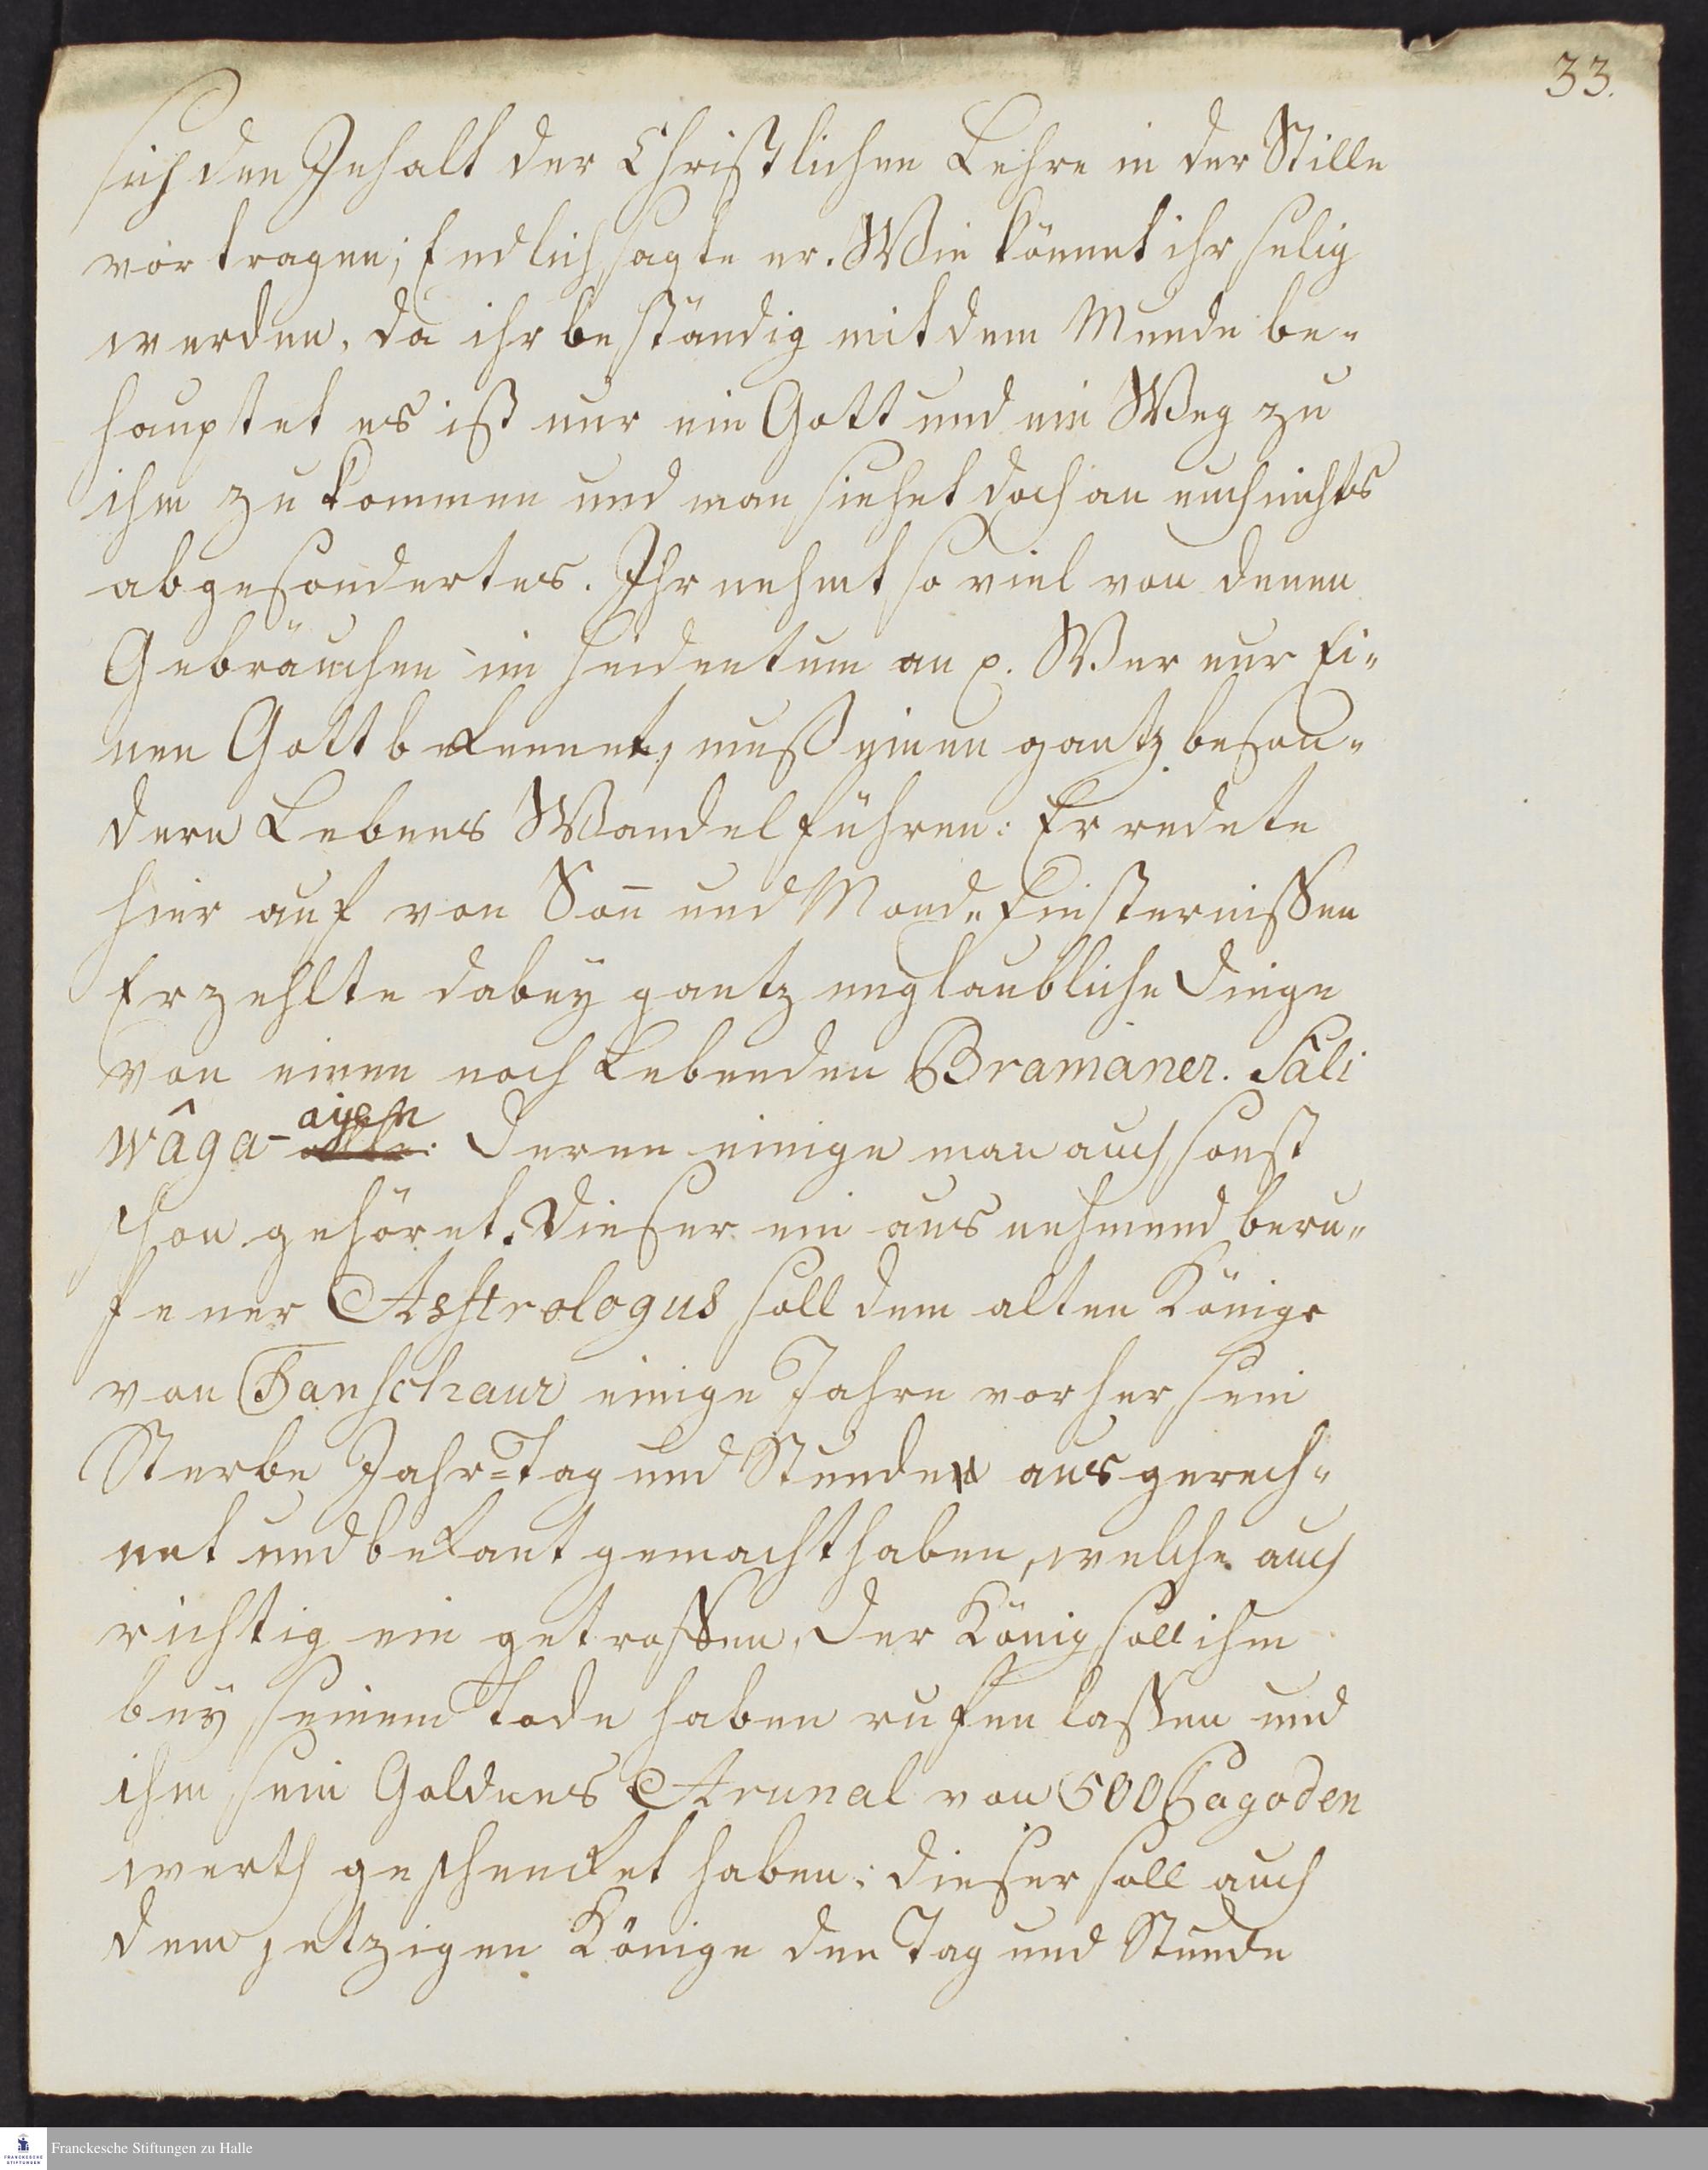 33.
sich den Inhalt der Christlichen Lehre in der Stille
vor tragen; Endlich sagte er. Wie könnet ihr selig
werden, da ihr beständig mit dem Munde be-
hauptet es ist nur ein Gott und ein Weg zu
ihm zu kommen und man siehet doch an euch nichts
abgesondertes. Ihr nehmt so viel von denen
Gebräuchen im Heidentum an p. Wer nur Ei-
nen Gott bekennet, muß einen gantz beson-
dern Lebens Wandel führen: Er redete
hier auf von Soñ und Mond-Finsternissen
Erzehlte dabey gantz unglaubliche Dinge
von einen noch Lebenden Bramaner. Sáli
wâga-ayen: Deren einige man auch sonst
schon gehöret. Dieser ein aus nehmend beru-
fener Astrologus soll dem alten Könige
von Tanschaur einige Jahre vorher sein
Sterbe Jahr-Tag und Stunde ausgerech-
net und bekant gemacht haben, welche auch
richtig ein getroffen. Der König soll ihm
bey seinem Tode haben ruffen lassen und
ihm sein Goldnes Arunal von 500 Pagoden
werth geschencket haben: dieser soll auch
dem jetzigen Könige den Tag und Stunde
Franckesche Stiftungen zu Halle
FRANCKESCHE
STIFTUNGEN